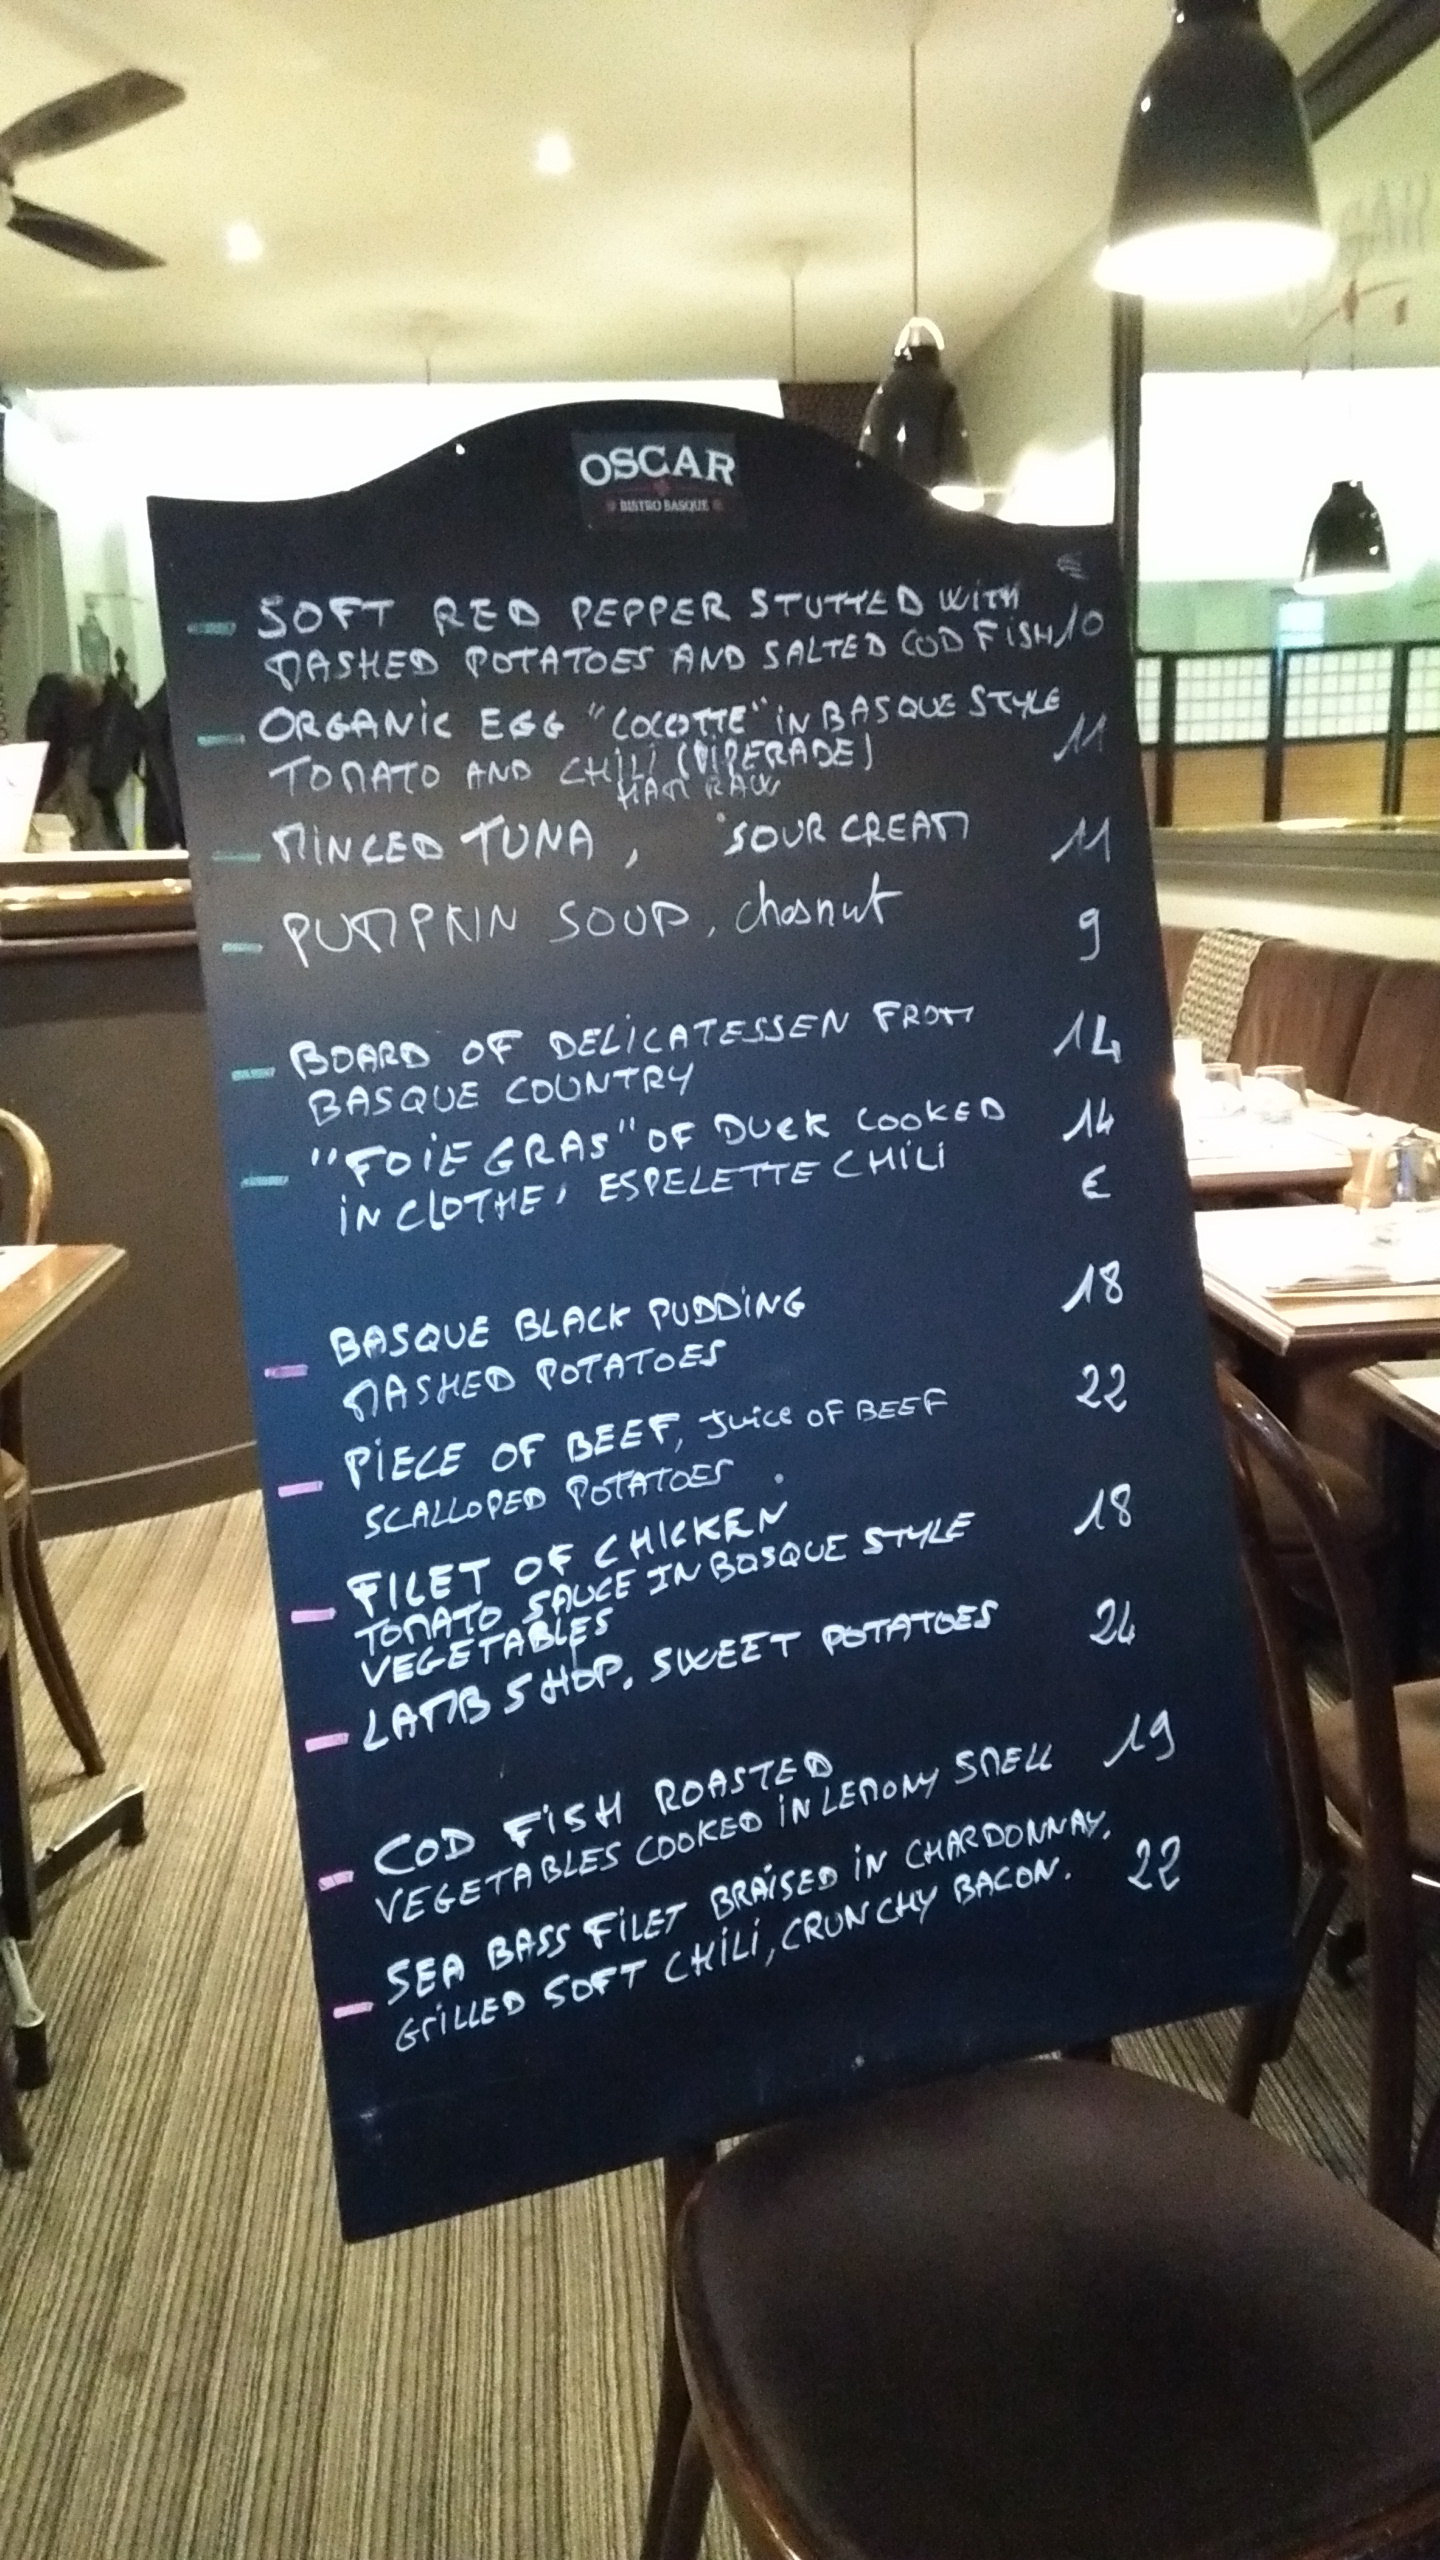 OSCAR
BISTRO BASQUE
€
SOFT RED PEPPER STUTTED WITH
MASHED POTATOES AND SALTED COD FISH 10
ORGANIC EGG "COCOTTE" IN BASQUE STYLE
TOMATO AND CHILI (PIPERADE) 11
HAM RAW
MINCED TUNA, SOUR CREAM 11
PUMPKIN SOUP, chasnut 9
BOARD OF DELICATESSEN FROM 14
BASQUE COUNTRY
"FOIE GRAS" OF DUCK COOKED 14
IN CLOTHE, ESPELETTE CHILI €
BASQUE BLACK PUDDING 18
MASHED POTATOES
PIECE OF BEEF, JUICE OF BEEF 22
SCALLOPED POTATOES
FILET OF CHICKEN 18
TOMATO SAUCE IN BASQUE STYLE
VEGETABLES
LAMB SHOP, SWEET POTATOES 24
COD FISH ROASTED 19
VEGETABLES COOKED IN LEMONY SMELL
SEA BASS FILET BRAISED IN CHARDONNAY, 22
GRILLED SOFT CHILI, CRUNCHY BACON.